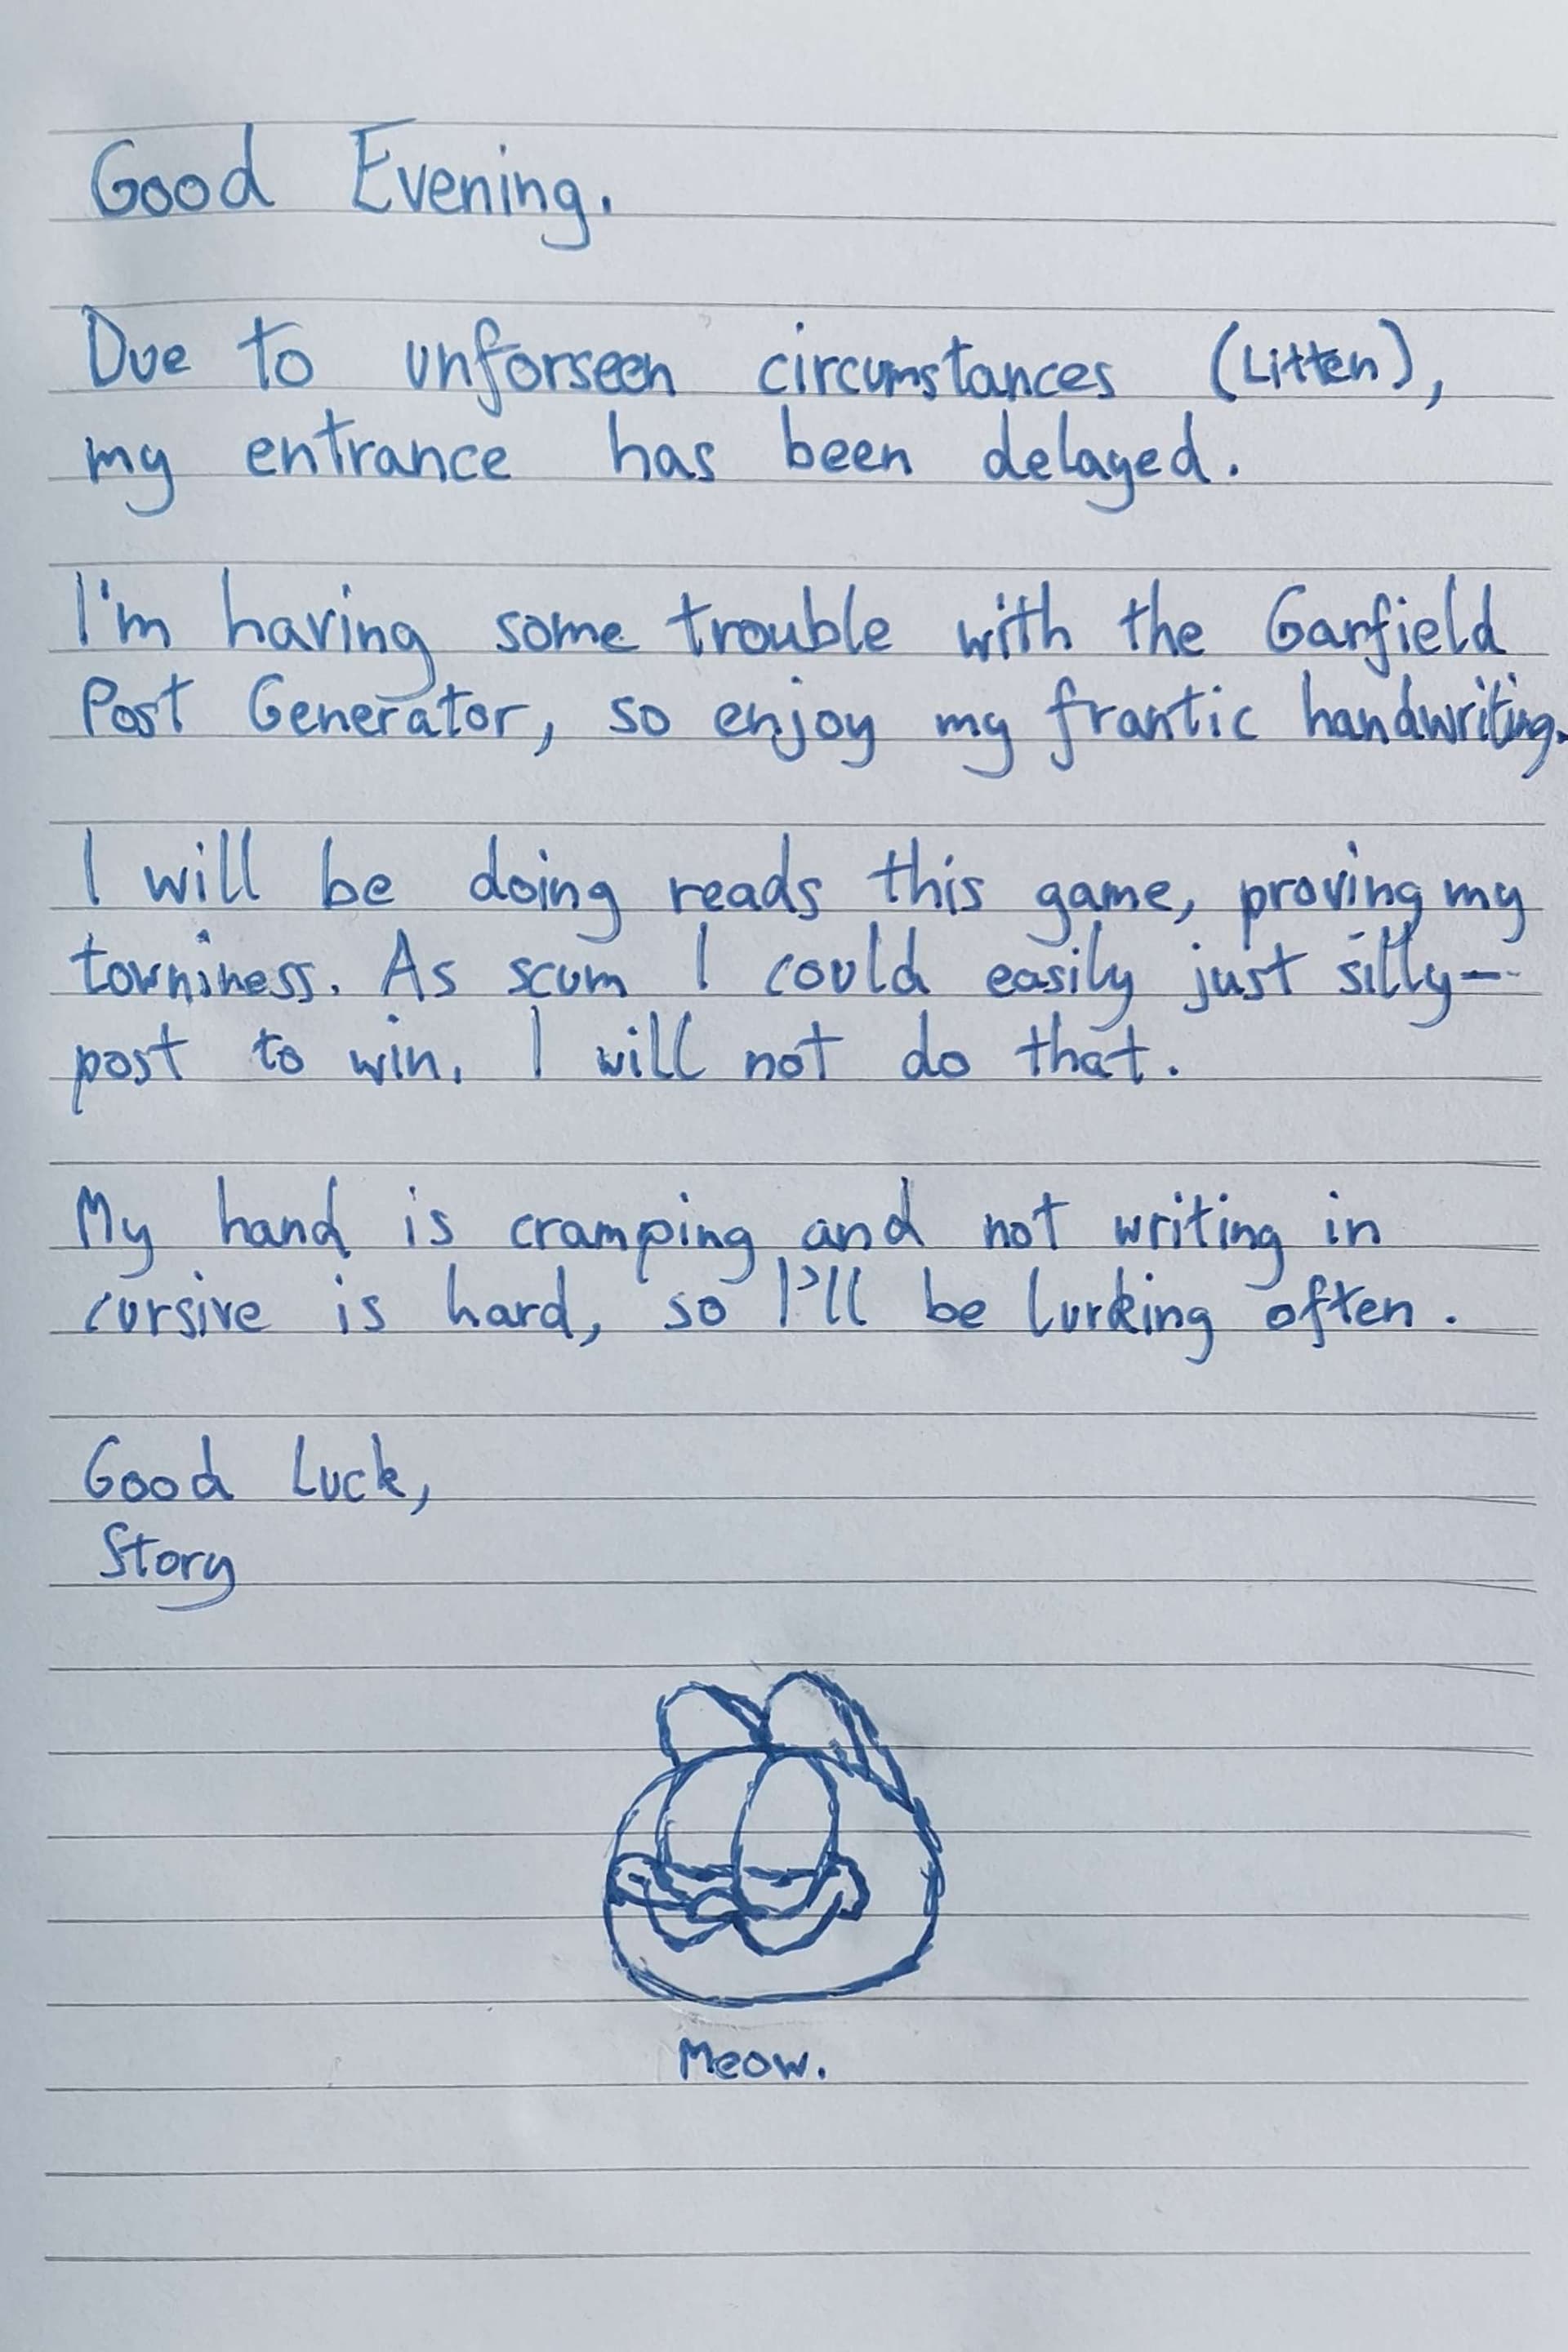 Good Evening.
Due to unforseen circumstances (Litten),
my entrance has been delayed.
I'm having some trouble with the Garfield
Post Generator, so enjoy my frantic handwriting.
I will be doing reads this game, proving my
towniness. As scum I could easily just silly-
post to win. I will not do that.
My hand is cramping and not writing in
cursive is hard, so I'll be lurking often.
Good Luck,
Story
Meow.